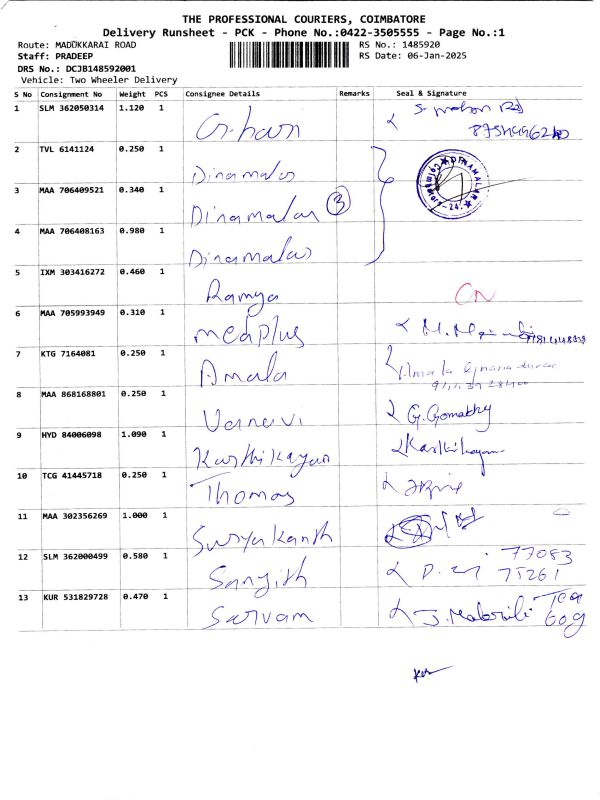 THE PROFESSIONAL COURIERS, COIMBATORE
Delivery Runsheet - PCK - Phone No.:0422-3505555 - Page No.:1
Route: MADUKKARAI ROAD RS No.: 1485920
Staff: PRADEEP RS Date: 06-Jan-2025
DRS No.: DCJB148592001
Vehicle: Two Wheeler Delivery
S No Consignment No Weight PCS Consignee Details Remarks Seal & Signature
1 SLM 362050314 1.120 1
2 TVL 6141124 0.250 1 Dinamalar DINAMALAR
3 MAA 706409521 0.340 1 Dinamalar 3
4 MAA 706408163 0.980 1 Dinamalar
5 IXM 303416272 0.460 1 Ramya CN
6 MAA 705993949 0.310 1 medplus
7 KTG 7164081 0.250 1 Amala Amala
8 MAA 868168801 0.250 1 G. Gomathy
9 HYD 84006098 1.090 1 Karthikayan Karthikayan
10 TCG 41445718 0.250 1 Thomas
11 MAA 302356269 1.000 1 Suryakanth
12 SLM 362000499 0.580 1 Sanjith 77083
75261
13 KUR 531829728 0.470 1 Sarvam